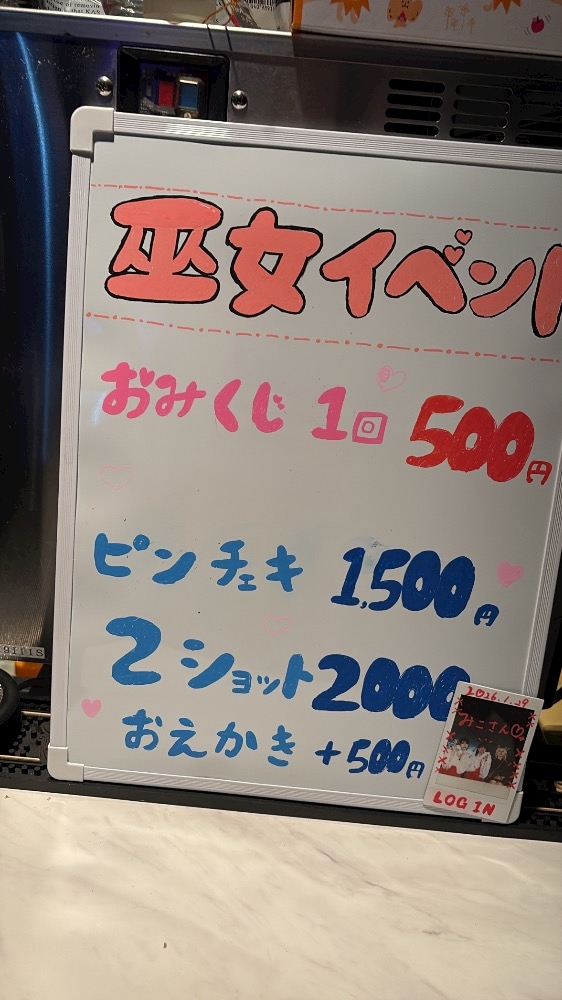 巫女イベント
おみくじ 1回 500円
ピンチェキ 1,500円
2ショット2000
おえかき +500円
2026.1.29
みこさん♡
LOG IN
9111S